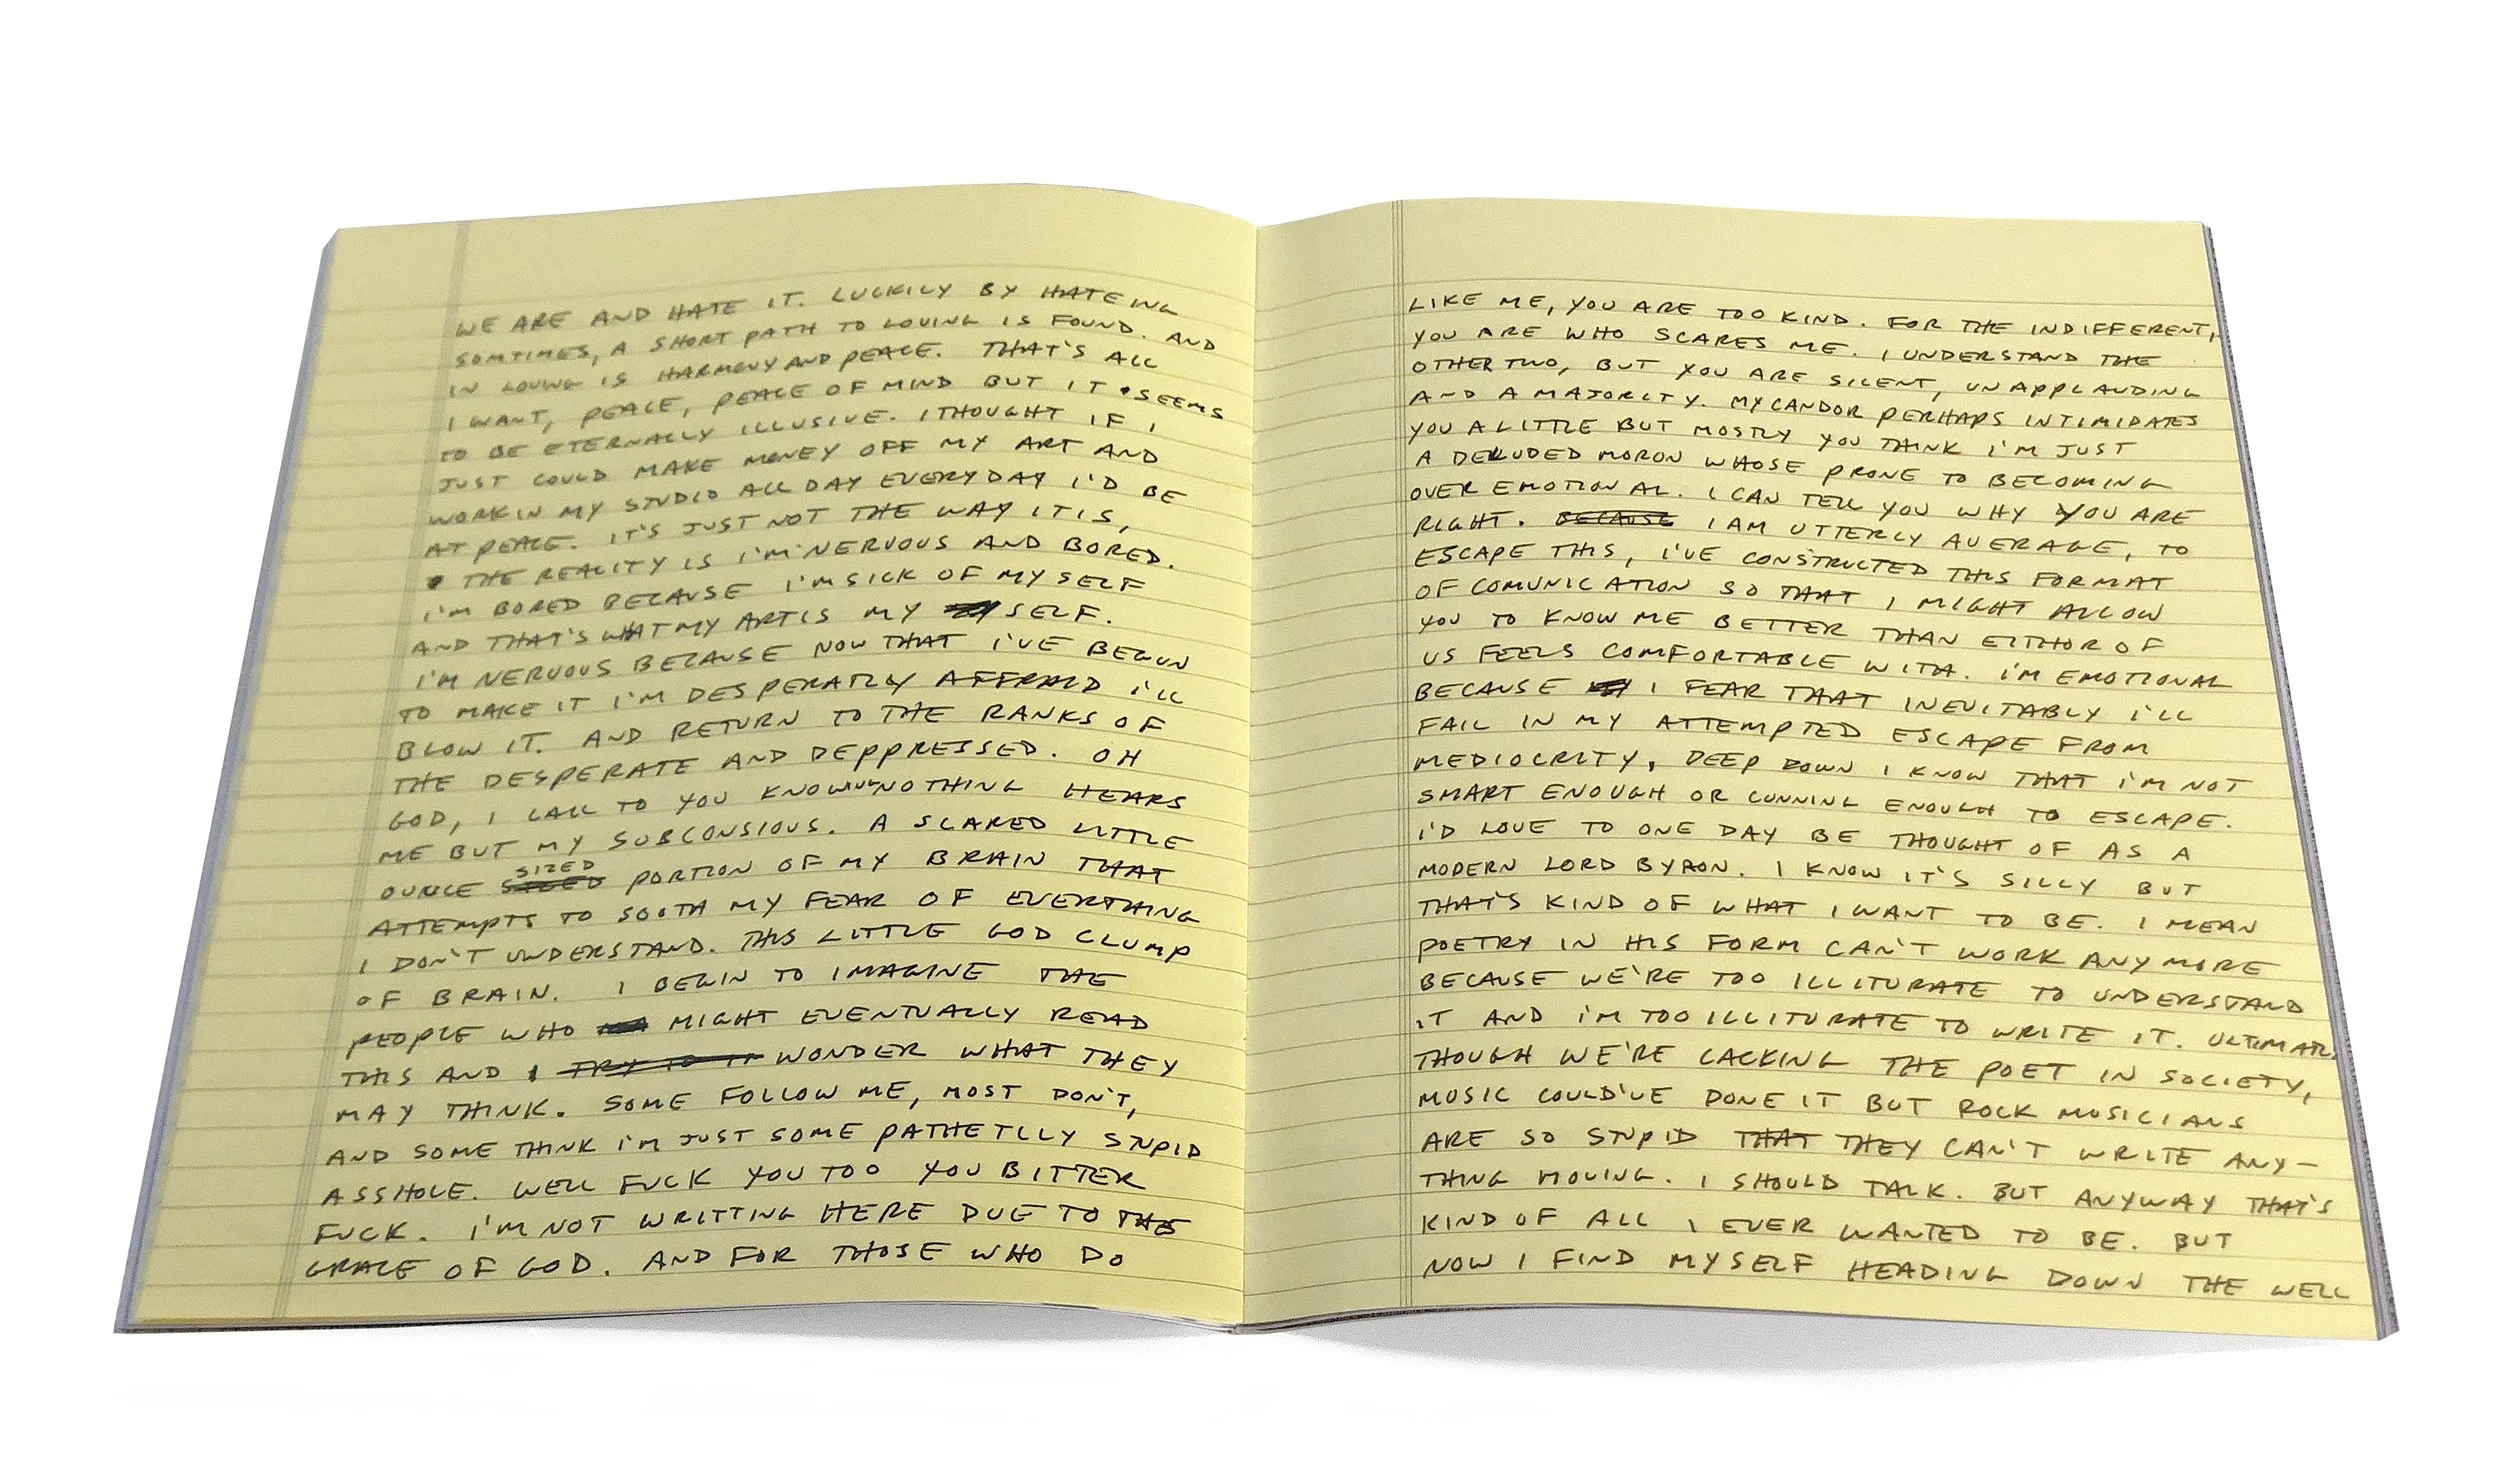 WE ARE AND HATE IT. LUCKILY BY HATEING
SOMTIMES, A SHORT PATH TO LOVING IS FOUND. AND
IN LOVING IS HARMONY AND PEACE. THAT'S ALL
I WANT, PEACE, PEACE OF MIND BUT IT SEEMS
TO BE ETERNALLY ILLUSIVE. I THOUGHT IF I
JUST COULD MAKE MONEY OFF MY ART AND
WORK IN MY STUDIO ALL DAY EVERYDAY I'D BE
AT PEACE. IT'S JUST NOT THE WAY IT IS,
THE REALITY IS I'M NERVOUS AND BORED.
I'M BORED BECAUSE I'M SICK OF MY SELF
AND THAT'S WHAT MY ART IS MY SELF.
I'M NERVOUS BECAUSE NOW THAT I'VE BEGUN
TO MAKE IT I'M DESPERATLY AFFRAID I'LL
BLOW IT. AND RETURN TO THE RANKS OF
THE DESPERATE AND DEPPRESSED. OH
GOD, I CALL TO YOU KNOWING NOTHING HEARS
ME BUT MY SUBCONSIOUS. A SCARED LITTLE
OUNCE SIZED PORTION OF MY BRAIN THAT
ATTEMPTS TO SOOTH MY FEAR OF EVERTHING
I DON'T UNDERSTAND. THIS LITTLE GOD CLUMP
OF BRAIN. I BEGIN TO IMAGINE THE
PEOPLE WHO MIGHT EVENTUALLY READ
THIS AND I TRY TO IT WONDER WHAT THEY
MAY THINK. SOME FOLLOW ME, MOST DON'T,
AND SOME THINK I'M JUST SOME PATHETLLY STUPID
ASSHOLE. WELL FUCK YOU TOO YOU BITTER
FUCK. I'M NOT WRITTING HERE DUE TO THE
GRACE OF GOD. AND FOR THOSE WHO DO
LIKE ME, YOU ARE TOO KIND. FOR THE INDIFFERENT,
YOU ARE WHO SCARES ME. I UNDERSTAND THE
OTHER TWO, BUT YOU ARE SILENT, UNAPPLAUDING
AND A MAJORITY. MY CANDOR PERHAPS INTIMIDATES
YOU A LITTLE BUT MOSTLY YOU THINK I'M JUST
A DELUDED MORON WHOSE PRONE TO BECOMING
OVER EMOTIONAL. I CAN TELL YOU WHY YOU ARE
RIGHT. BECAUSE I AM UTTERLY AVERAGE, TO
ESCAPE THIS, I'VE CONSTRUCTED THIS FORMAT
OF COMUNICATION SO THAT I MIGHT ALLOW
YOU TO KNOW ME BETTER THAN EITHOR OF
US FEELS COMFORTABLE WITH. I'M EMOTIONAL
BECAUSE I FEAR THAT INEVITABLY I'LL
FAIL IN MY ATTEMPTED ESCAPE FROM
MEDIOCRITY, DEEP DOWN I KNOW THAT I'M NOT
SMART ENOUGH OR CUNNING ENOUGH TO ESCAPE.
I'D LOVE TO ONE DAY BE THOUGHT OF AS A
MODERN LORD BYRON. I KNOW IT'S SILLY BUT
THAT'S KIND OF WHAT I WANT TO BE. I MEAN
POETRY IN HIS FORM CAN'T WORK ANYMORE
BECAUSE WE'RE TOO ILLITURATE TO UNDERSTAND
IT AND I'M TOO ILLITURATE TO WRITE IT.
THOUGH WE'RE LACKING THE POET IN SOCIETY,
MUSIC COULD'VE DONE IT BUT ROCK MUSICIANS
ARE SO STUPID THAT THEY CAN'T WRITE ANY-
THING MOVING. I SHOULD TALK. BUT ANYWAY THAT'S
KIND OF ALL I EVER WANTED TO BE. BUT
NOW I FIND MYSELF HEADING DOWN THE WELL